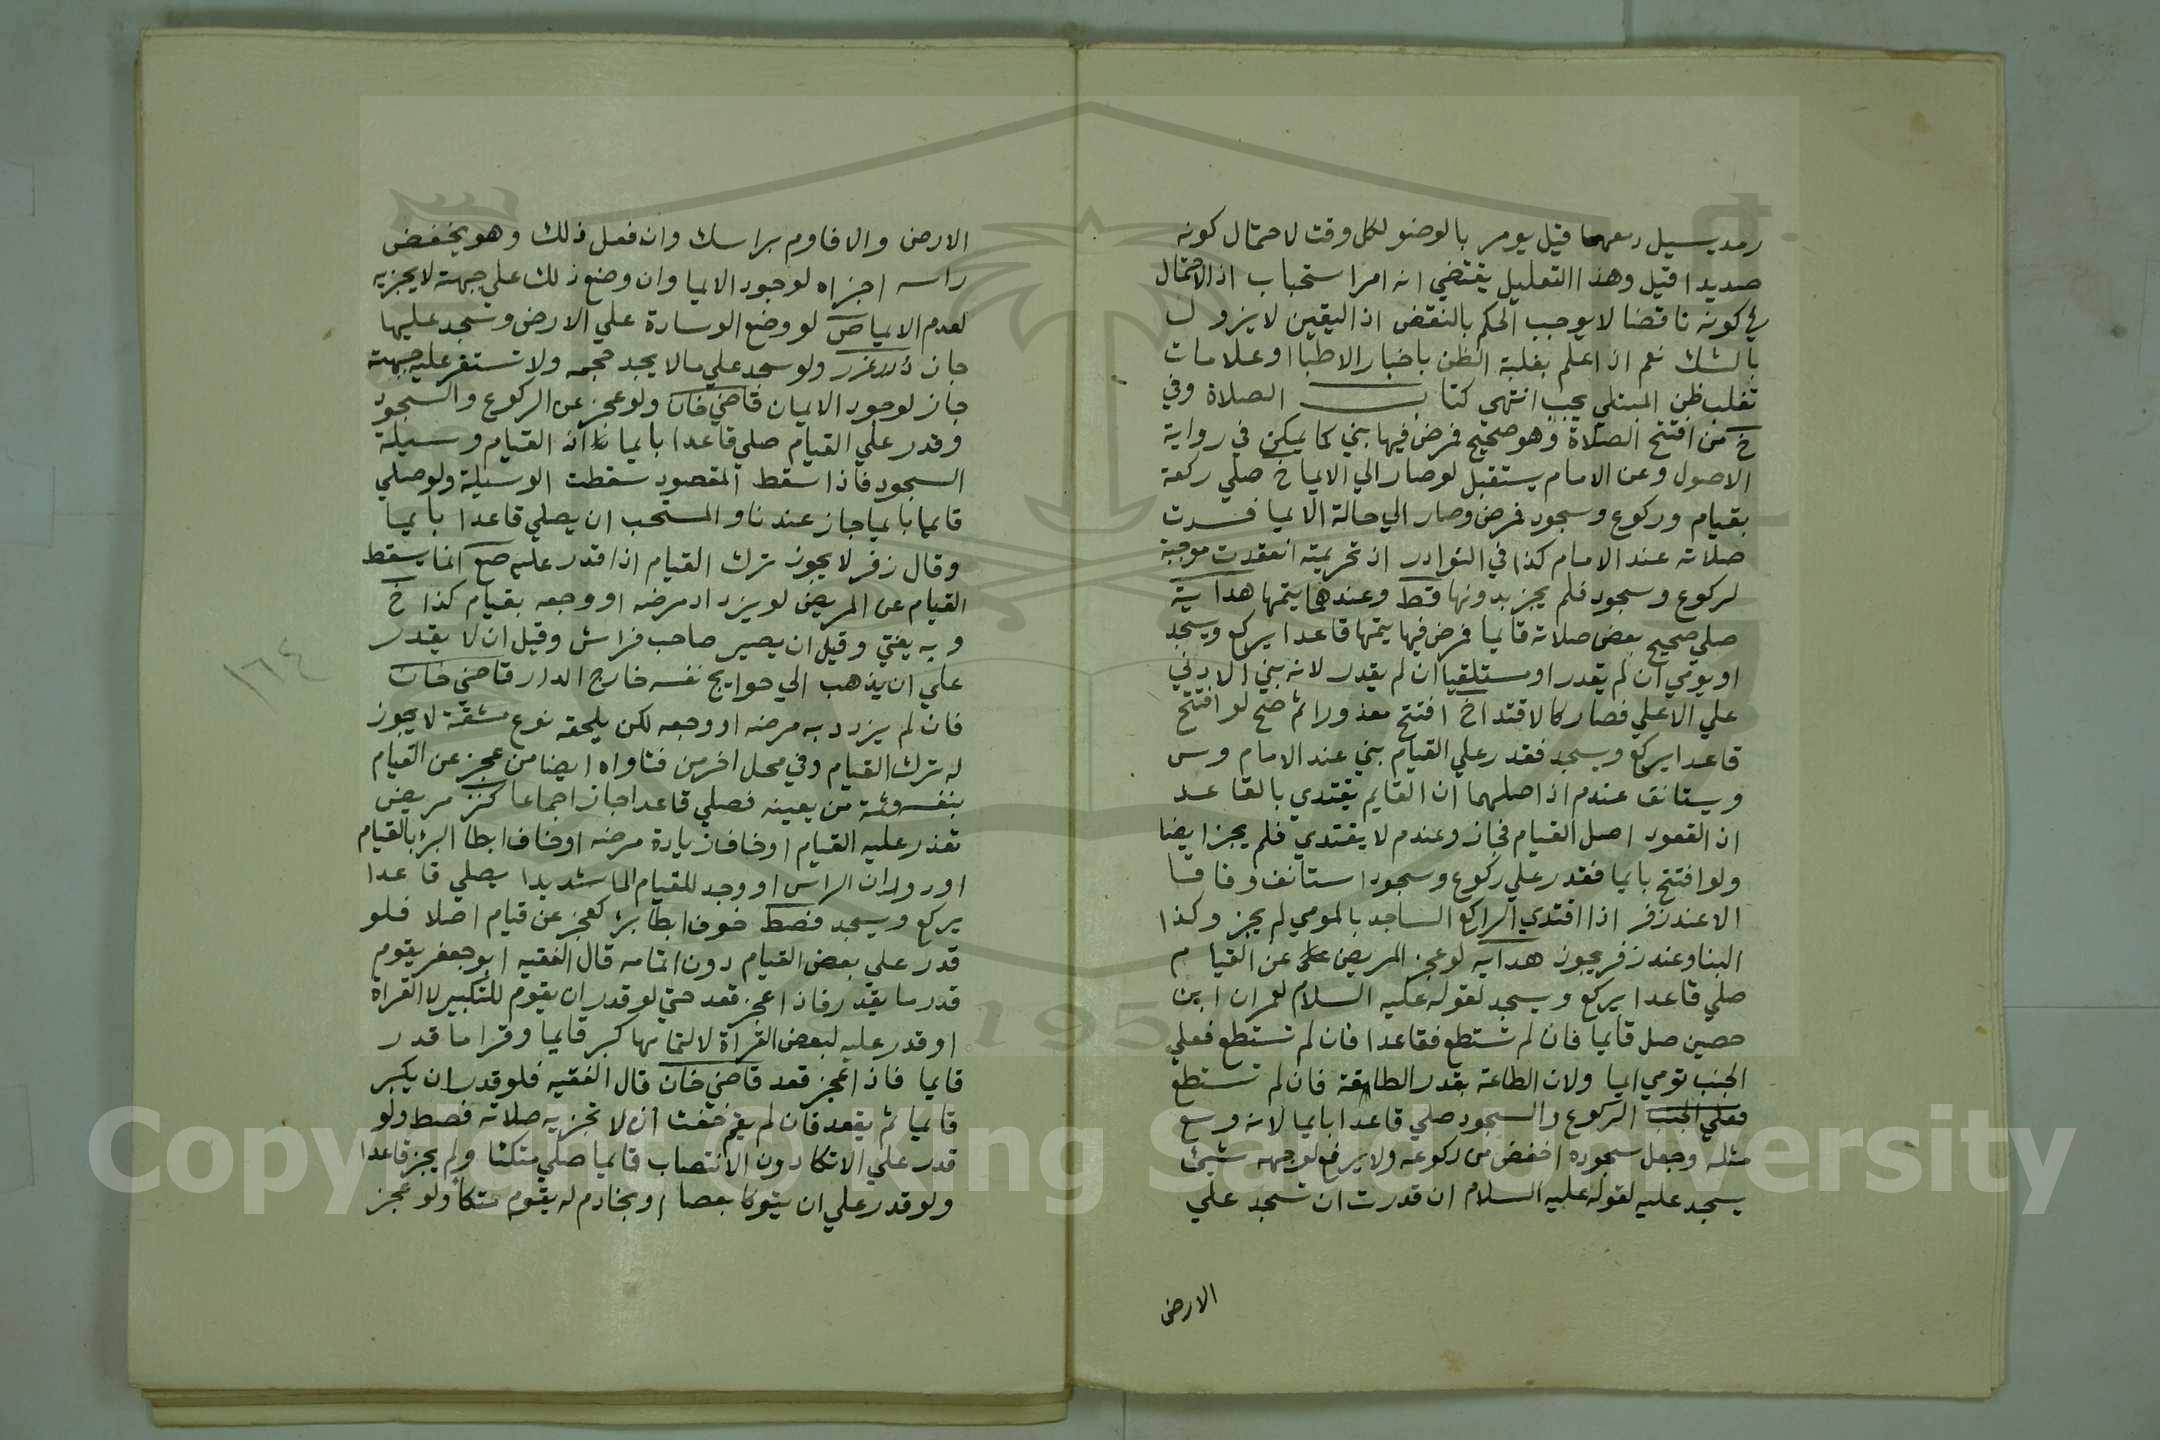 رمد يسيل دمعهما قيل يومر بالوضو لكل وقت لاحتمال كونه
صديدا قيل وهذا التعليل يقتضي انه امر استحباب اذ الاحتمال
في كونه ناقضا لا يوجب الحكم بالنقض اذ اليقين لا يزول
بالشك نعم اذا علم بغلبة الظن باخبار الاطبا او علامات
تغلب ظن المبتلي يجب انتهى كتاب الصلاة وفي
خ من افتتح الصلاة وهو صحيح فمرض فيها بني كما يمكن في رواية
الاصول وعن الامام يستقبل لو صار الي الايما خ صلي ركعة
بقيام وركوع وسجود فمرض وصار الي حالة الايما فسدت
صلاته عند الامام كذا في النوادر اذ تحريمته انعقدت موجبة
لركوع وسجود فلم يجز بدونها قط وعندهما يتمها هداية
صلي صحيح بعض صلاته قايما فمرض فيها يتمها قاعدا يركع ويسجد
او يومي ان لم يقدر او مستلقيا ان لم يقدر لانه بني الادني
علي الاعلي فصار كالاقتدا خ افتتح معذورا ثم صح لو افتتح
قاعدا يركع ويسجد فقدر علي القيام بني عند الامام وس
ويستانف عندم اذ اصلهما ان القايم يقتدي بالقاعد
ان القعود اصل القيام فجاز وعندم لا يقتدي فلم يجز ايضا
ولو افتتح بايما فقدر علي ركوع وسجود استانف وفاقا
الا عند زفر اذا اقتدي الراكع الساجد بالمومي لم يجز وكذا
البنا وعند زفر يجوز هدايه لو عجز المريض عن القيام
صلي قاعدا يركع ويسجد لقوله عليه السلام لعمران ابن
حصين صل قايما فان لم تستطع فقاعدا فان لم تستطع فعلي
الجنب تومي ايما ولان الطاعة بقدر الطاقة فان لم تستطع
فعلي الجنب الركوع والسجود صلي قاعدا بايما لانه وسع
مثله وجعل سجوده اخفض من ركوعه ولا يرفع لوجهه شيئ
يسجد عليه لقوله عليه السلام ان قدرت ان تسجد علي
الارض
الارض والا فاوم براسك وان فعل ذلك وهو يخفض
راسه اجزاه لوجود الايما وان وضع ذلك علي جبهته لا يجزيه
لعدم الايما ص لو وضع الوسادة علي الارض وسجد عليها
جاز ولو سجد علي ما لا يجد حجمه ولا تستقر عليه جبهته
جاز لوجود الايمان قاضي خان ولو عجز عن الركوع والسجود
وقدر علي القيام صلي قاعدا بايما اذ القيام وسيلة
السجود فاذا سقط المقصود سقطت الوسيلة ولو صلي
قايما بايما جاز عندنا والمستحب ان يصلي قاعدا بايما
وقال زفر لا يجوز ترك القيام اذا قدر عليه صع انما يسقط
القيام عن المريض لو يزداد مرضه او وجعه بقيام كذا خ
وبه يفتي وقيل ان يصير صاحب فراش وقيل ان لا يقدر
علي ان يذهب الي حوايج نفسه خارج الدار قاضي خان
فان لم يزدد به مرضه او وجعه لكن يلحقه نوع مشقة لا يجوز
له ترك القيام وفي محل اخر من فتاواه ايضا من عجز عن القيام
بنفسه وثمة من يعينه فصلي قاعدا جاز اجماعا كنز مريض
تعذر عليه القيام او خاف زيادة مرضه او خاف ابطا البرء بالقيام
او دوران الراس او وجد للقيام الما شديدا يصلي قاعدا
يركع ويسجد فصط خوف ابطا برء كعجز عن قيام اصلا فلو
قدر علي بعض القيام دون اتمامه قال الفقيه ابو جعفر يقوم
قدر ما يقدر فاذا عجز قعد حتي لو قدر ان يقوم للتكبير لا القراة
او قدر عليه لبعض القراة لا لتمامها كبر قايما وقرا ما قدر
قايما فاذا عجز قعد قاضي خان قال الفقيه فلو قدر ان يكبر
قايما ثم يقعد فان لم يقم خفت ان لا تجزيه صلاته فصط ولو
قدر علي الاتكا دون الانتصاب قايما صلي متكئا ولم يجز قاعدا
ولو قدر علي ان يتوكا بعصا او بخادم له يقوم متكأ ولو عجز
١٦٤
Copyright © King Saud University
1957